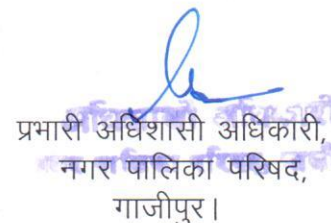 प्रभारी अधिशासी अधिकारी,
नगर पालिका परिषद,
गाजीपुर।